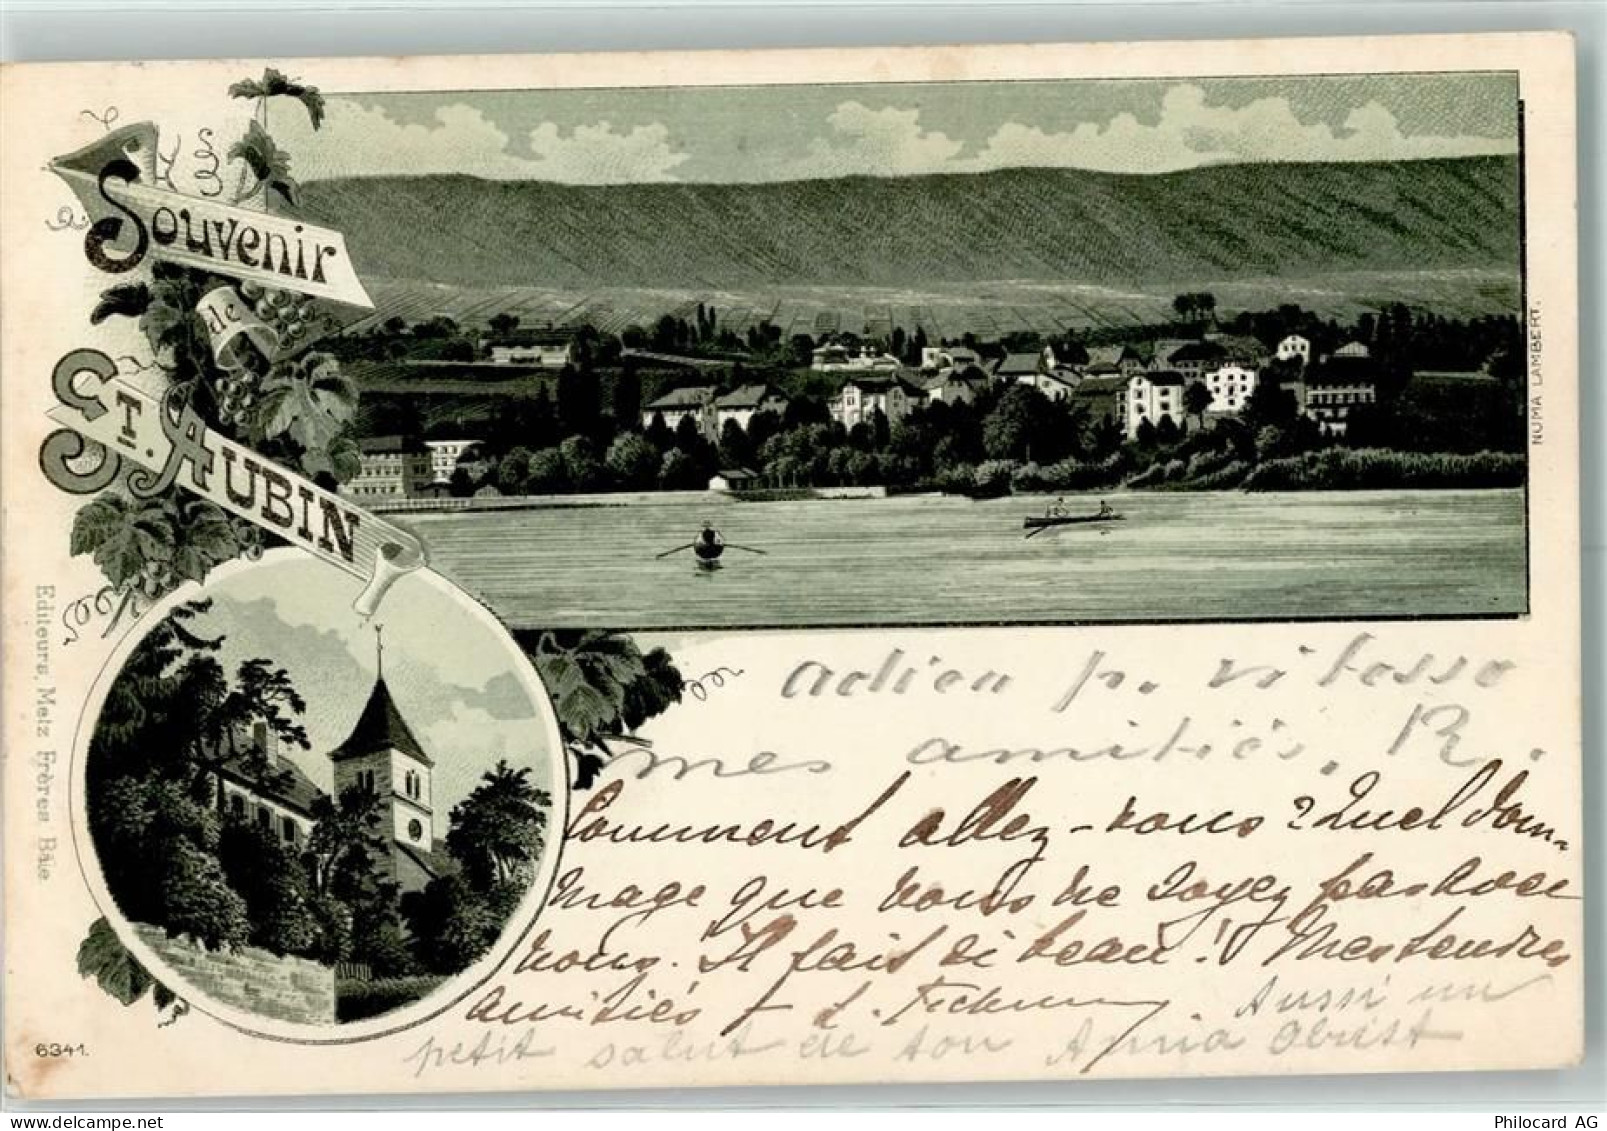 Souvenir
de
St. Aubin
NUMA LAMBERT.
Editeurs, Metz Frères Bâle.
6341.
adieu p. vitesse
mes amitiés. R.
Comment allez-vous? Quel dom-
mage que vous ne soyez pas avec
nous. Il fait si beau! Mes tendres
amitiés
Aussi un
petit salut de ton Anna Obrist
Philocard AG